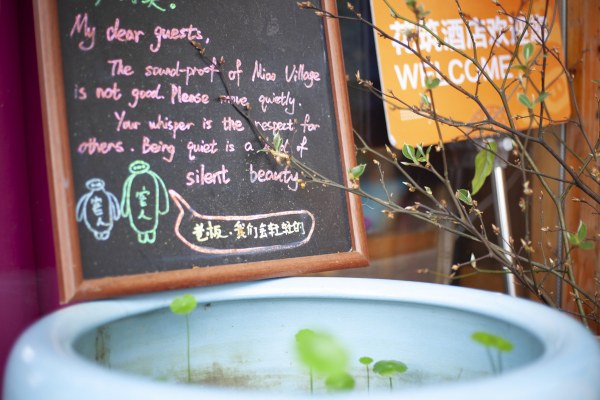 My dear guests,
The sound-proof of Miao Village
is not good. Please move quietly.
Your whisper is the respect for
others. Being quiet is a kind of
silent beauty.
客人
客人
老板，我们会轻轻的
花筑酒店欢迎您
WELCOME